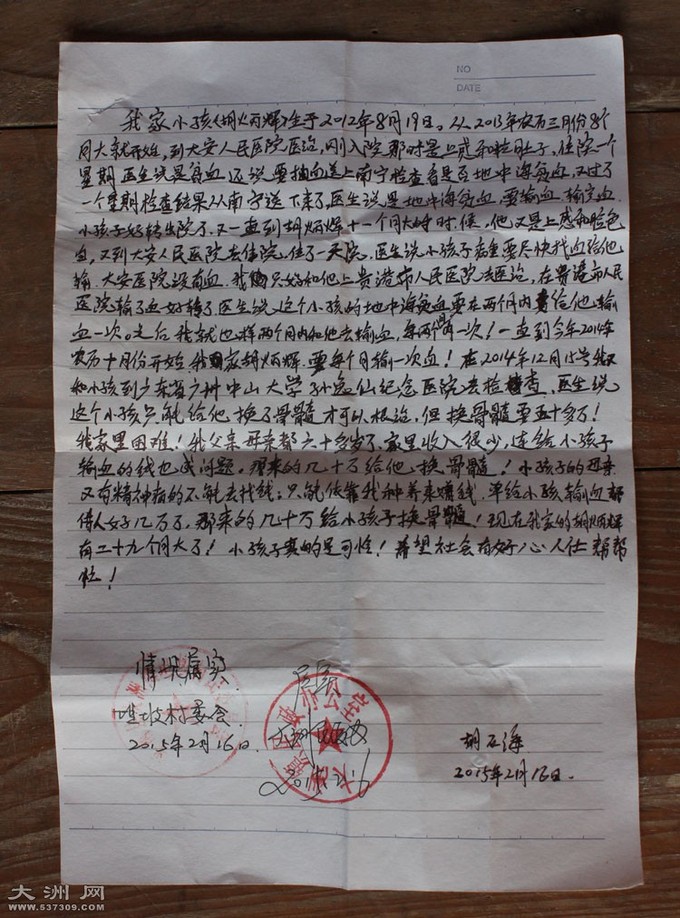 NO
DATE
我家小孩(胡炳辉)生于2012年8月19日。从2013年农历三月份8个
月大就开始,到大安人民医院医治,刚入院那时是上感和粒肚子,住院一个
星期医生说是贫血还说要抽血送上南宁检查看是否地中海贫血,又过了
一个星期检查结果从南宁送下来了,医生说是地中海贫血,要输血,输完血
小孩子好转出院了。又一直到胡炳辉十一个月大时时候,他又是上感和脸色
白,又到大安人民医院去住院,住了一天院,医生说小孩子危重要尽快找血给他
输,大安医院没有血,我只好和他上贵港市人民医院去医治,在贵港市人民
医院输了血好转了医生说,这个小孩的地中海贫血要在两个月内要给他输
血一次。之后我就也样两个月内和他去输血,每两个月一次!一直到今年2014年
农历十月份开始我家胡炳辉要每个月输一次血!在2014年12月15号我
和小孩到广东省广州中山大学孙逸仙纪念医院去检查,医生说
这个小孩只能给他换了骨髓才可以根治,但换骨髓要五十多万!
我家里困难!我父亲母亲都六十多岁了,家里收入很少,连给小孩子
输血的钱也成问题。那来的几十万给他换骨髓!小孩子的母亲
又有精神病的不能去找钱;只能依靠我种养来赚钱,单给小孩输血都
借人好几万了,那来的几十万给小孩子换骨髓!现在我家的胡炳辉
有二十九个月大了!小孩子真的是可怜!希望社会有好心人仕帮帮
忙!
情况属实
坡村委会
2015年2月16日
属实
胡石海
2015年2月16日.
大洲网
www.537309.com